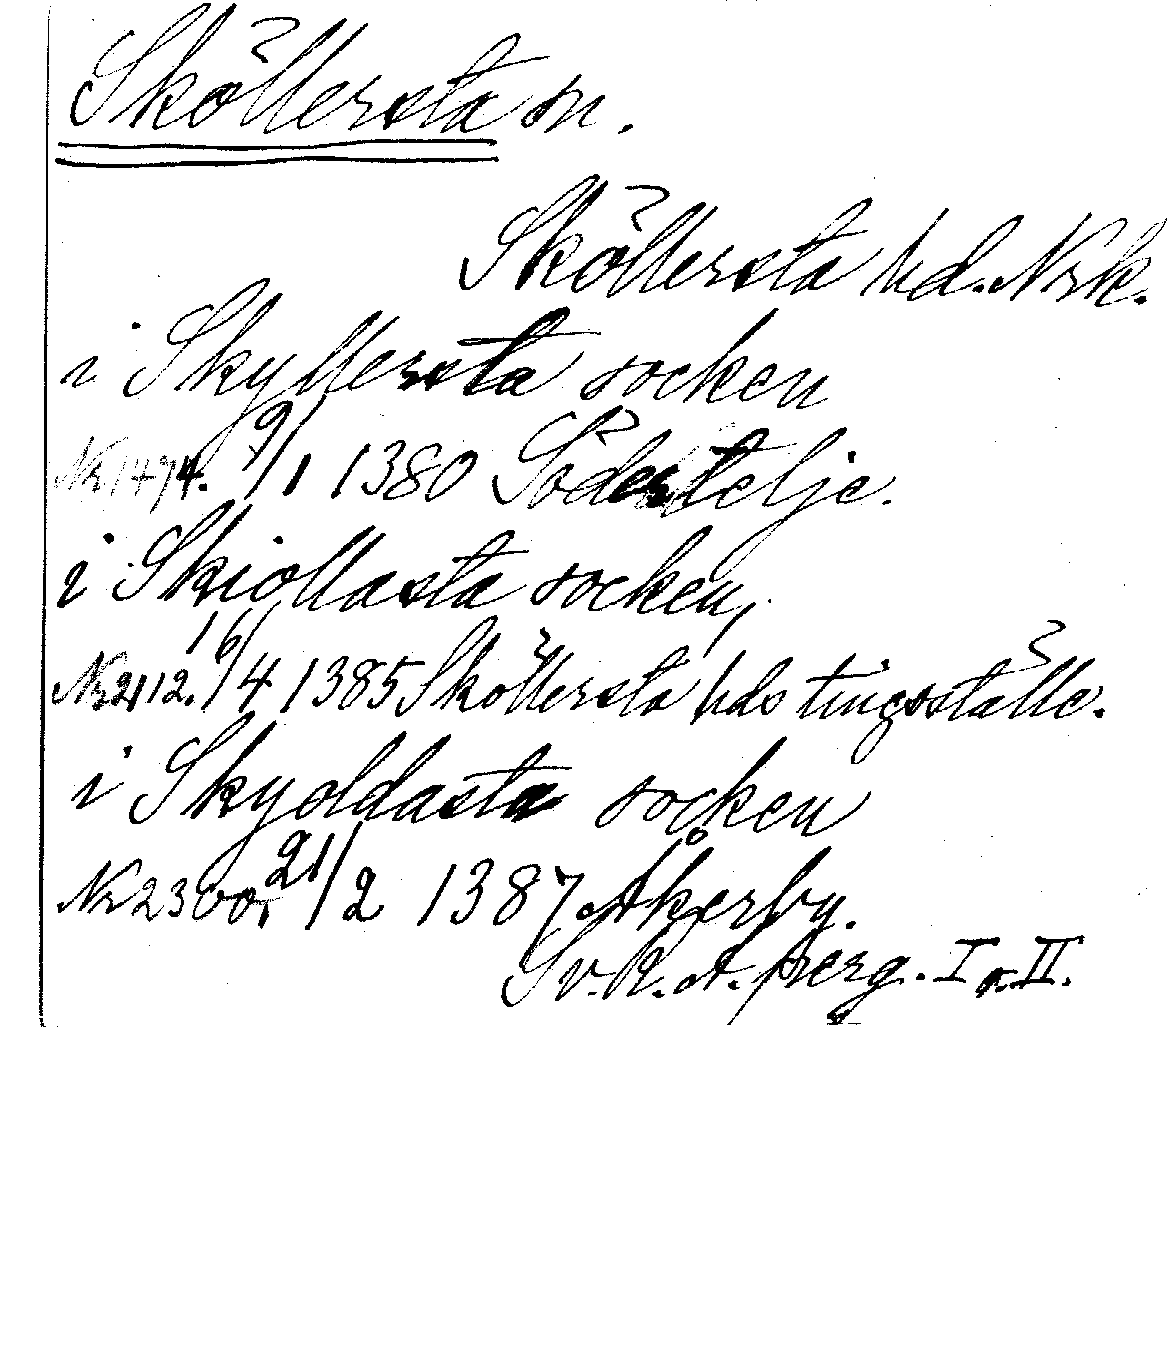 Sköllersta sn.
Sköllersta hd. Nrk.
i Skyllersta socken
Nr 1474. 9/1 1380 Södertelje.
i Skiollasta socken,
Nr 2112. 16/4 1385 Sköllersta hds tingsställe.
i Skyoldasta socken
Nr 2300, 21/2 1387 Åkerby.
Sv. R. A. perg. I o. II.